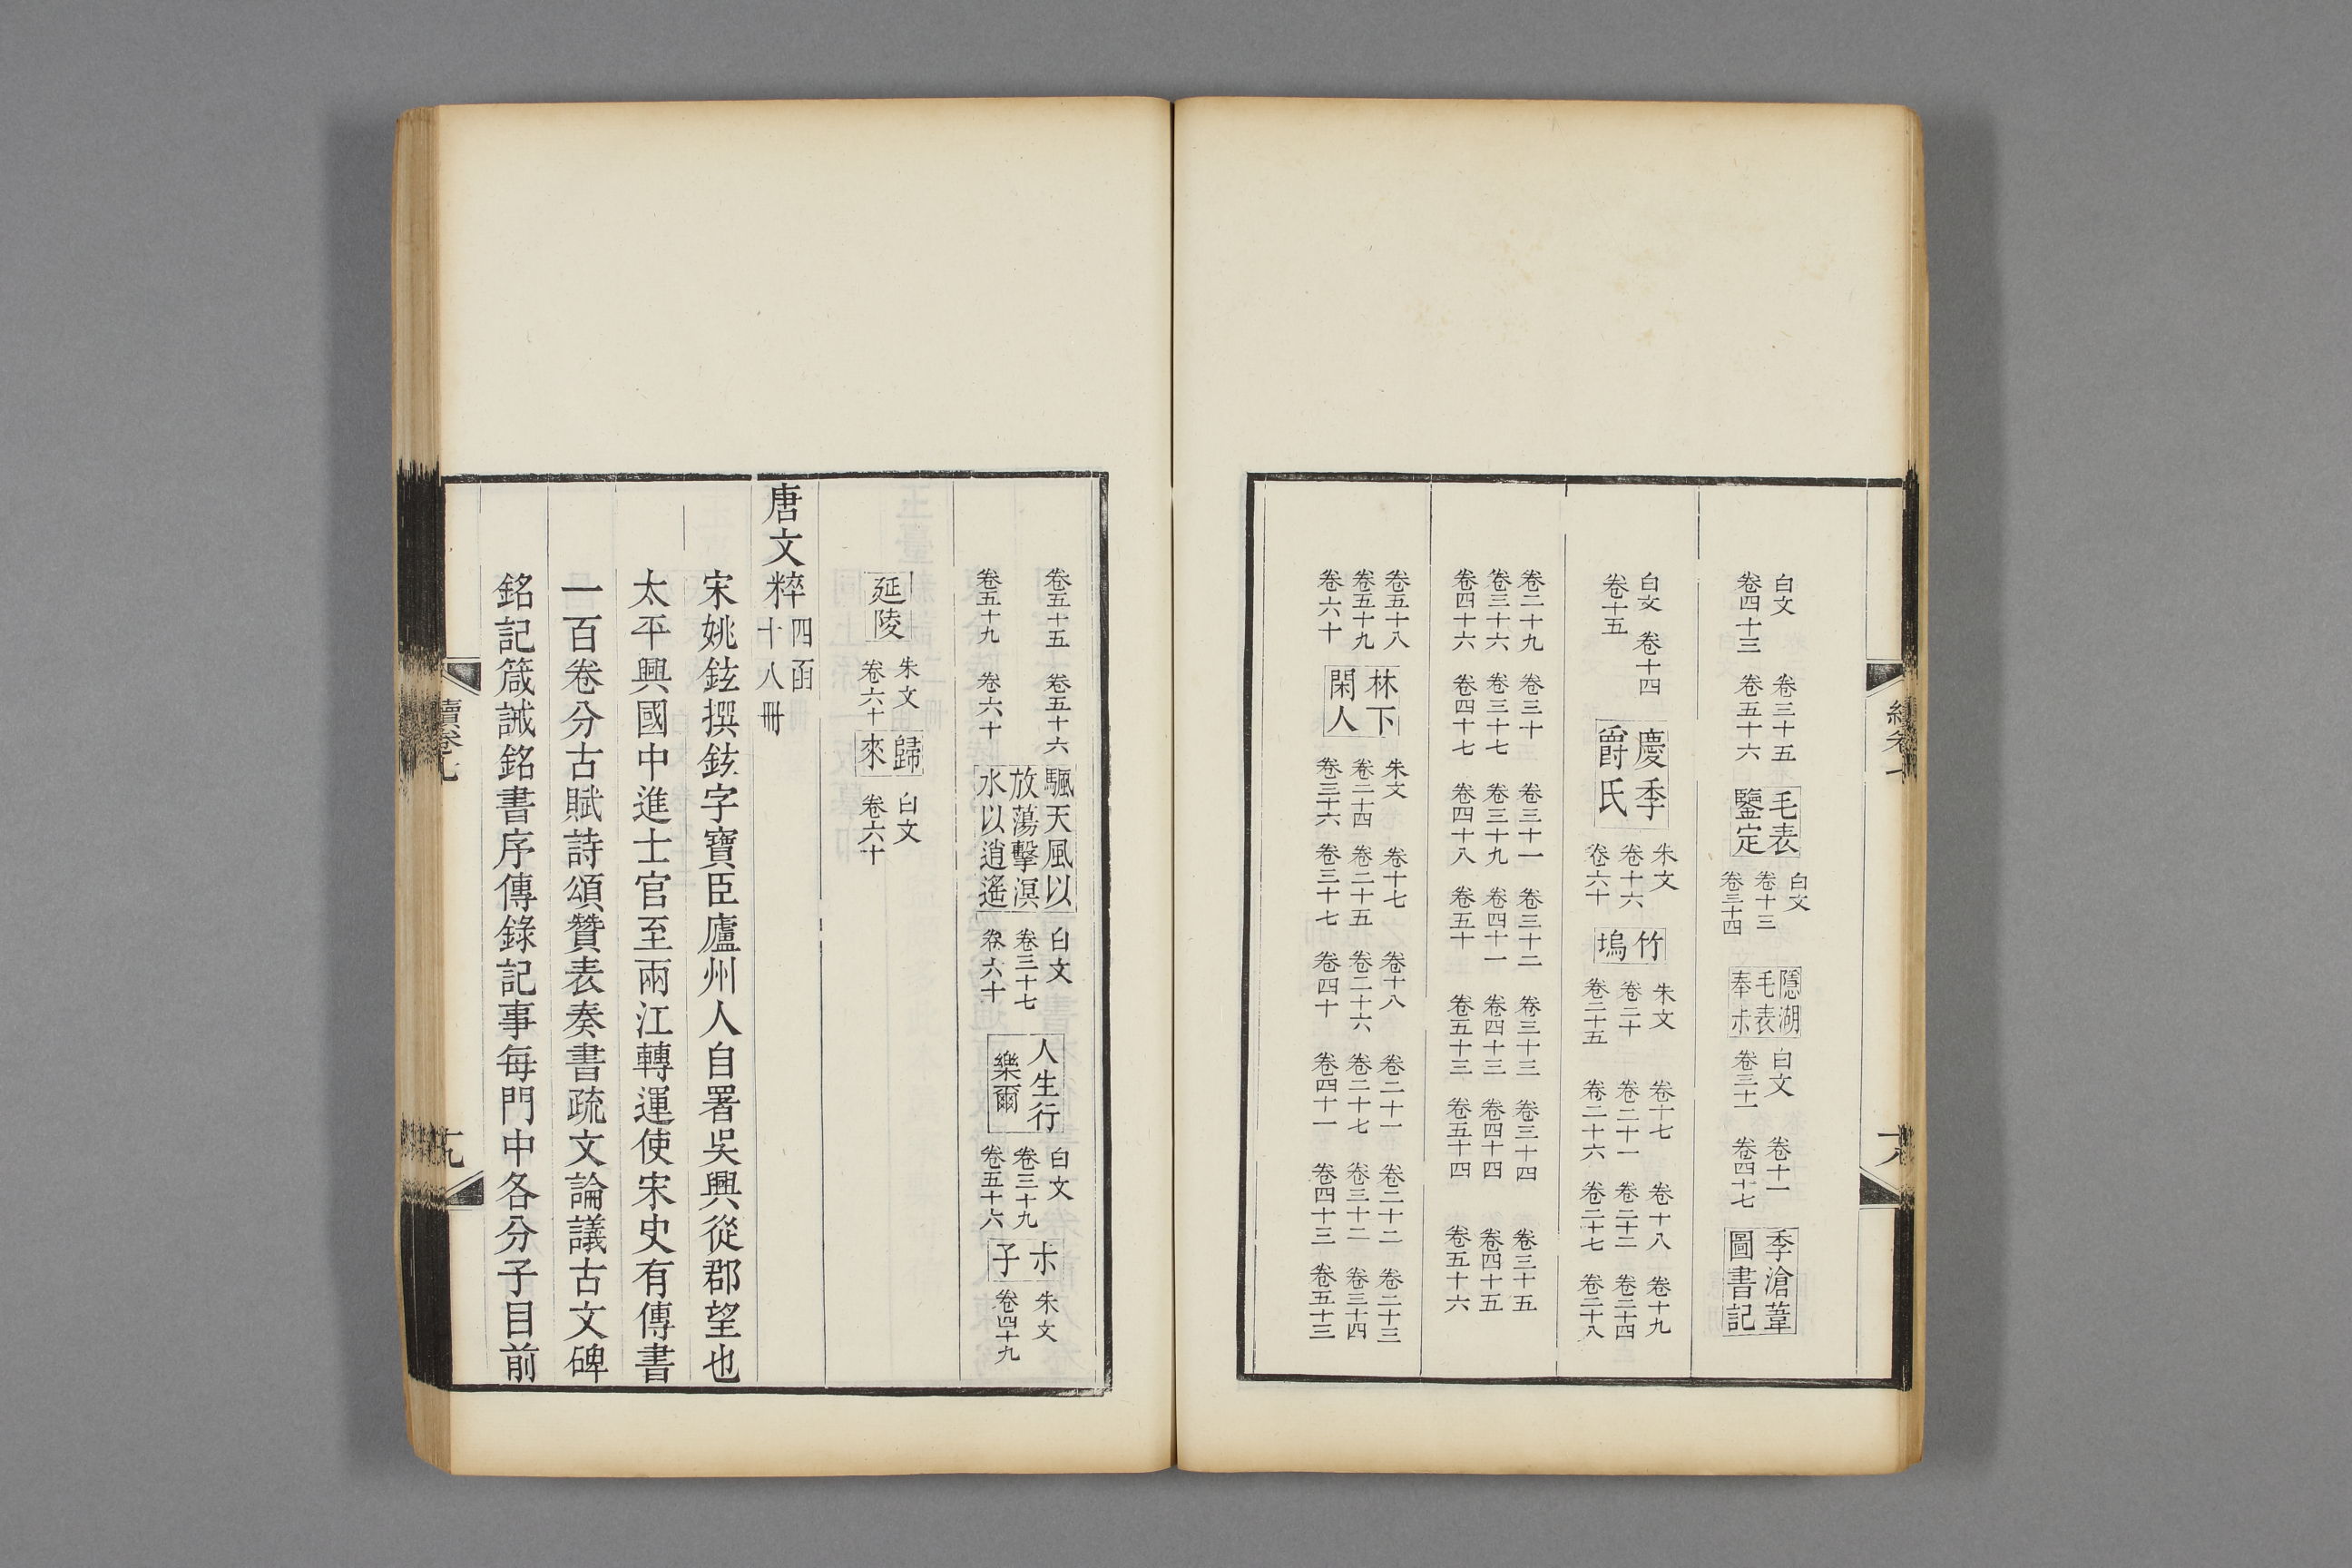 白文 卷三十五
卷四十三 卷五十六
毛表
鑒定
白文
卷十三
卷三十四
隱湖
毛表
奉尗
白文 卷十一
卷三十一 卷四十七
季滄葦
圖書記
白文 卷十四
卷十五
慶季
爵氏
朱文
卷十六
卷六十
竹
塢
朱文 卷十七 卷十八 卷十九
卷二十 卷二十一 卷二十二 卷二十四
卷二十五 卷二十六 卷二十七 卷二十八
卷二十九 卷三十 卷三十一 卷三十二 卷三十三 卷三十四 卷三十五
卷三十六 卷三十七 卷三十九 卷四十一 卷四十三 卷四十四 卷四十五
卷四十六 卷四十七 卷四十八 卷五十 卷五十三 卷五十四 卷五十六
卷五十八
卷五十九
卷六十
林下
閑人
朱文 卷十七 卷十八 卷二十一 卷二十二 卷二十三
卷二十四 卷二十五 卷二十六 卷二十七 卷三十二 卷三十四
卷三十六 卷三十七 卷四十 卷四十一 卷四十三 卷五十三
卷五十五 卷五十六
卷五十九 卷六十
颿天風以
放蕩擊溟
水以逍遙
白文
卷三十七
卷六十
人生行
樂爾
白文
卷三十九
卷五十六
尗
子
朱文
卷四十九
延
陵
朱文
卷六十
歸
來
白文
卷六十
唐文粹 四函
十八冊
宋姚鉉撰鉉字寶臣廬州人自署吳興從郡望也
太平興國中進士官至兩江轉運使宋史有傳書
一百卷分古賦詩頌贊表奏書疏文論議古文碑
銘記箴誡銘書序傳錄記事每門中各分子目前
續卷九
十九